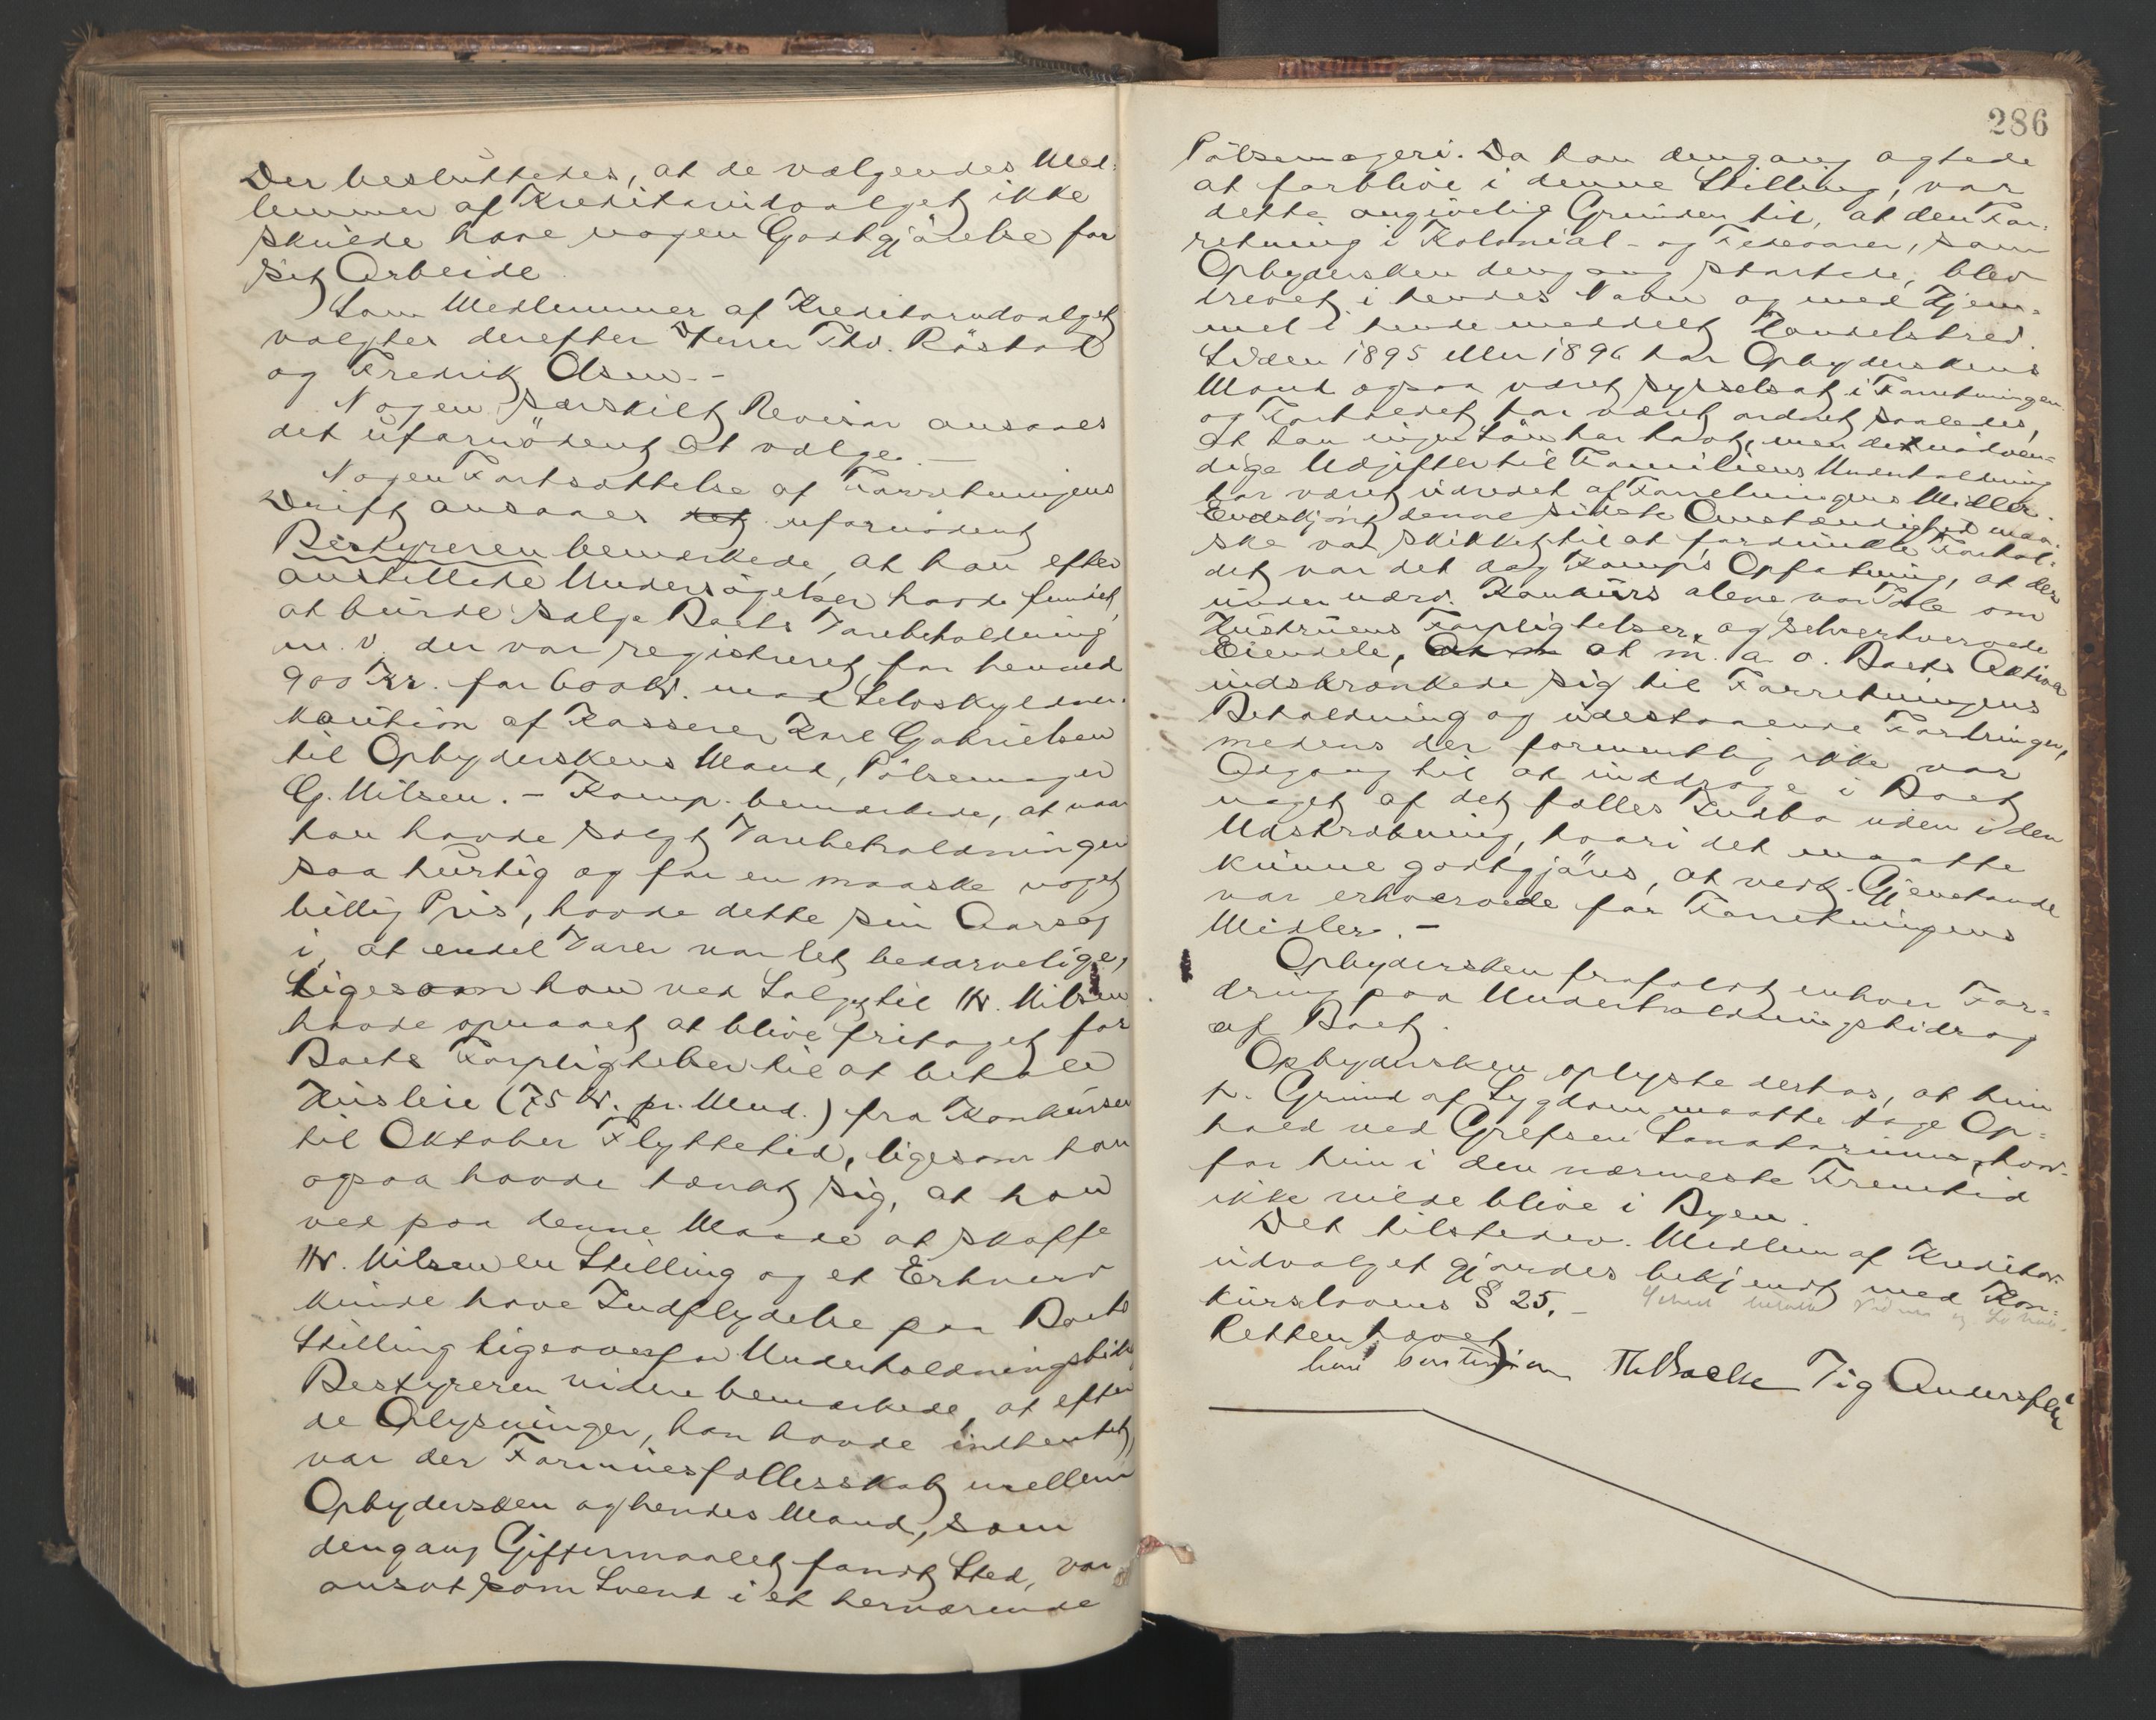 Der besluttedes, at de vælgendes Med-
lemmer af Kreditorudvalget ikke
skulde have nogen Godtgjørelse for
sit Arbeide.
Som Medlemmer af Kreditorudvalget
valgtes derefter Herrer Thv. Röstad
og Fredrik Olsen. -
Nogen særskilt Revisor ansaaes
det ufornödent at vælge. -
Nogen Fortsættelse af Forretningens
Drift ansaaes det ufornödent
Bestyreren bemærkede, at han efter
anstillede Undersøgelser havde fundet
at burde sælge Boets Varebeholdning
m. v. der var registreret for henved
900 Kr. for 600 Kr. mod Selvskyldner-
kaution af Kasserer Karl Gabrielsen
til Opbyderskens Mand, Pölsemager
G. Nilsen. - Komp. bemærkede, at naar
han havde solgt Varebeholdningen
saa hurtig og for en maaske noget
billig Pris, havde dette sin Aarsag
i, at endel Varer var let bedærvelige,
ligesom han ved Salget til Hr. Nilsen
havde opnaaet at blive fritaget for
Boets Forpligtelser til at betale
Husleie (75 Kr. pr. Mnd.) fra Konkursen
til Oktober Flyttetid, ligesom han
ogsaa havde tænkt sig, at han
ved paa denne Maade at skaffe
Hr. Nilsen en Stilling og et Erhverv
kunde have Indflydelse paa Boets
Stilling ligeoverfor Underholdningsbidr.
Bestyreren videre bemærkede, at efter
de Oplysninger, han havde indhentet,
var der Formuesfællesskab mellem
Opbydersken og hendes Mand, som
dengang Giftermaalet fandt Sted, var
ansat som Svend i et herværende
286
Pölsemageri. Da han dengang agtede
at forblive i denne Stilling, var
dette angivelig Grunden til, at den For-
retning i Kolonial- og Fedevarer, som
Opbydersken dengang startede, blev
drevet i hendes Navn og med Hjem-
mel i hende meddelt Handelsbrev.
Siden 1895 eller 1896 har Opbyderskens
Mand ogsaa været sysselsat i Forretningen
og Forholdet har været ordnet saaledes,
at han ingen Løn har havt, men de nödven-
dige Udgifter til Familiens Underholdning
har været udredet af Forretningens Midler.
Endskjönt denne sidste Omstændighed maa-
ske var skikket til at fordunkle Forhol-
det, var det dog Komp's Opfatning, at der
under nærv. Konkurs alene var Tale om
Hustruens Forpligtelser og selverhvervede
Eiendele, at m. a. o. Boets Aktiva
indskrænkede sig til Forretningens
Beholdning og udestaaende Fordringer,
medens der formentlig ikke var
Adgang til at inddrage i Boet
noget af det fælles Indbo uden i den
Udstrækning, hvori det maatte
kunne godtgjøres, at vedk. Gjenstande
var erhvervede for Forretningens
Midler. -
Opbydersken frafaldt enhver For-
dring paa Underholdningsbidrag
af Boet.
Opbydersken oplyste derhos, at hun
p. Grund af Sygdom maatte tage Op-
hold ved Grefsen Sanatorium, hvor-
for hun i den nærmeste Fremtid
ikke vilde blive i Byen.
Det tilstedev. Medlem af Kreditor-
udvalget gjordes bekjendt med Kon-
kurslovens § 25. -
Retten hævet